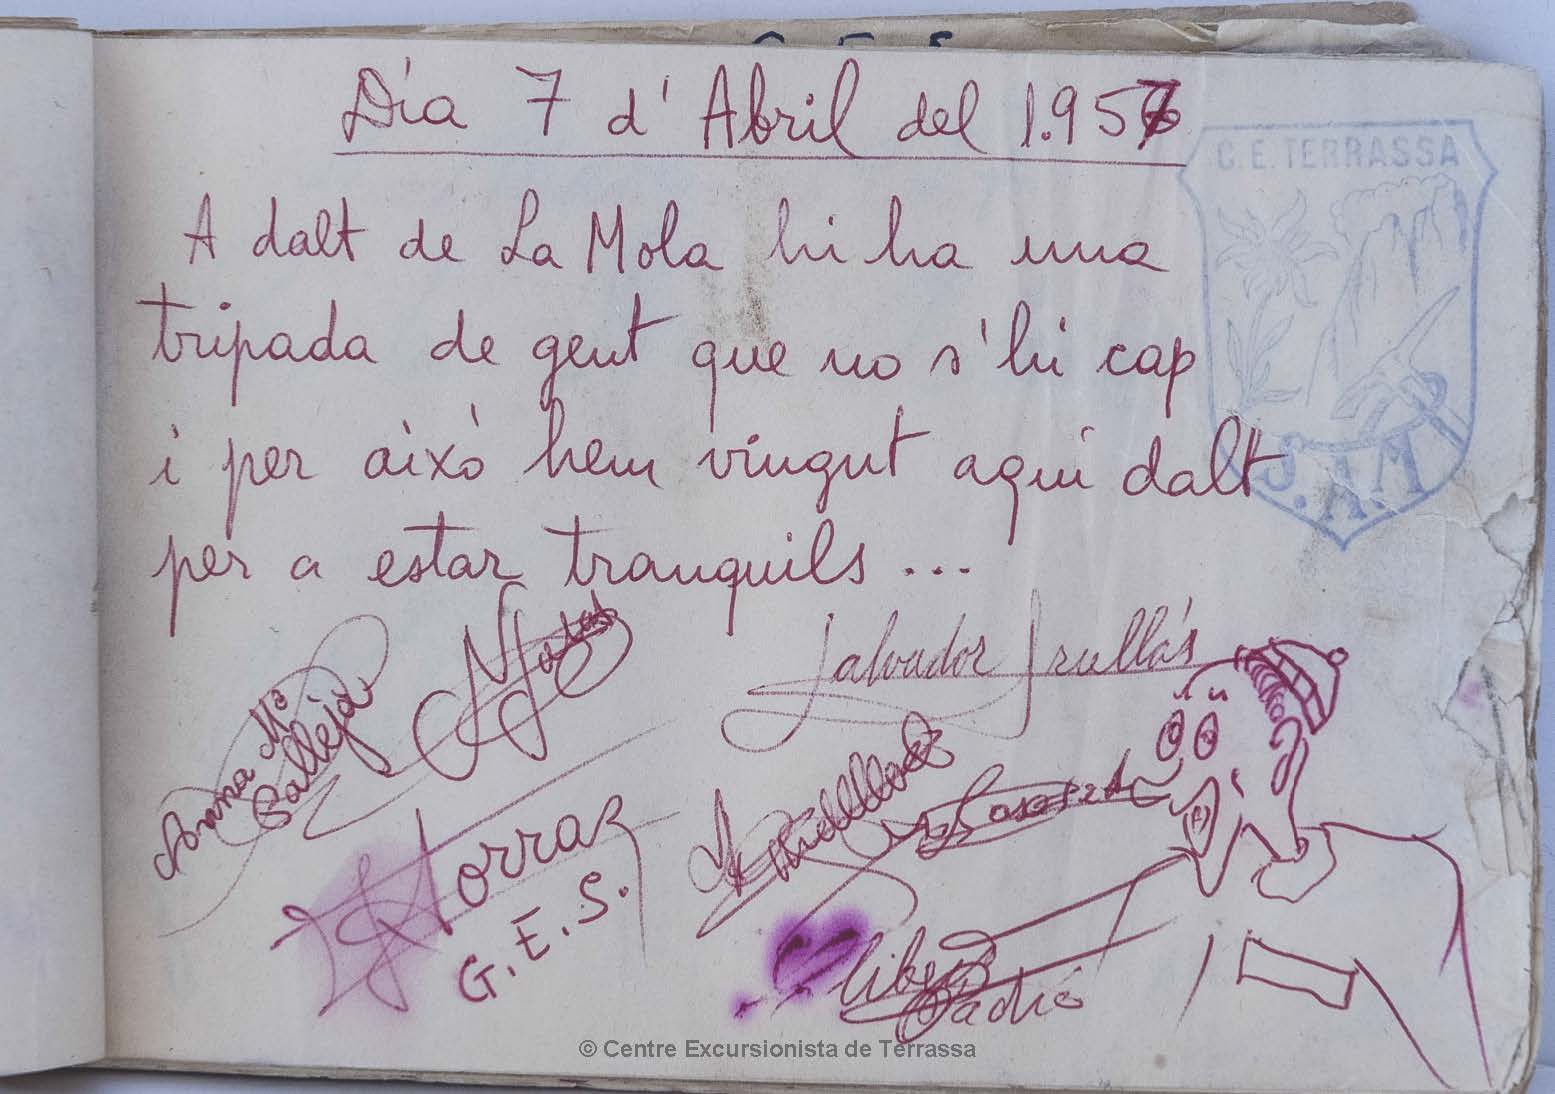 G. E. S.
Día 7 d'Abril del 1.957
C. E. TERRASSA
A dalt de La Mola hi ha una
tripada de gent que no s'hi cap
i per aixó hem vingut aquí dalt
J. A. M
per a estar tranquils ...
Salvador Trullás
Anna Mª
Calleja
Torras
G. E. S.
© Centre Excursionista de Terrassa